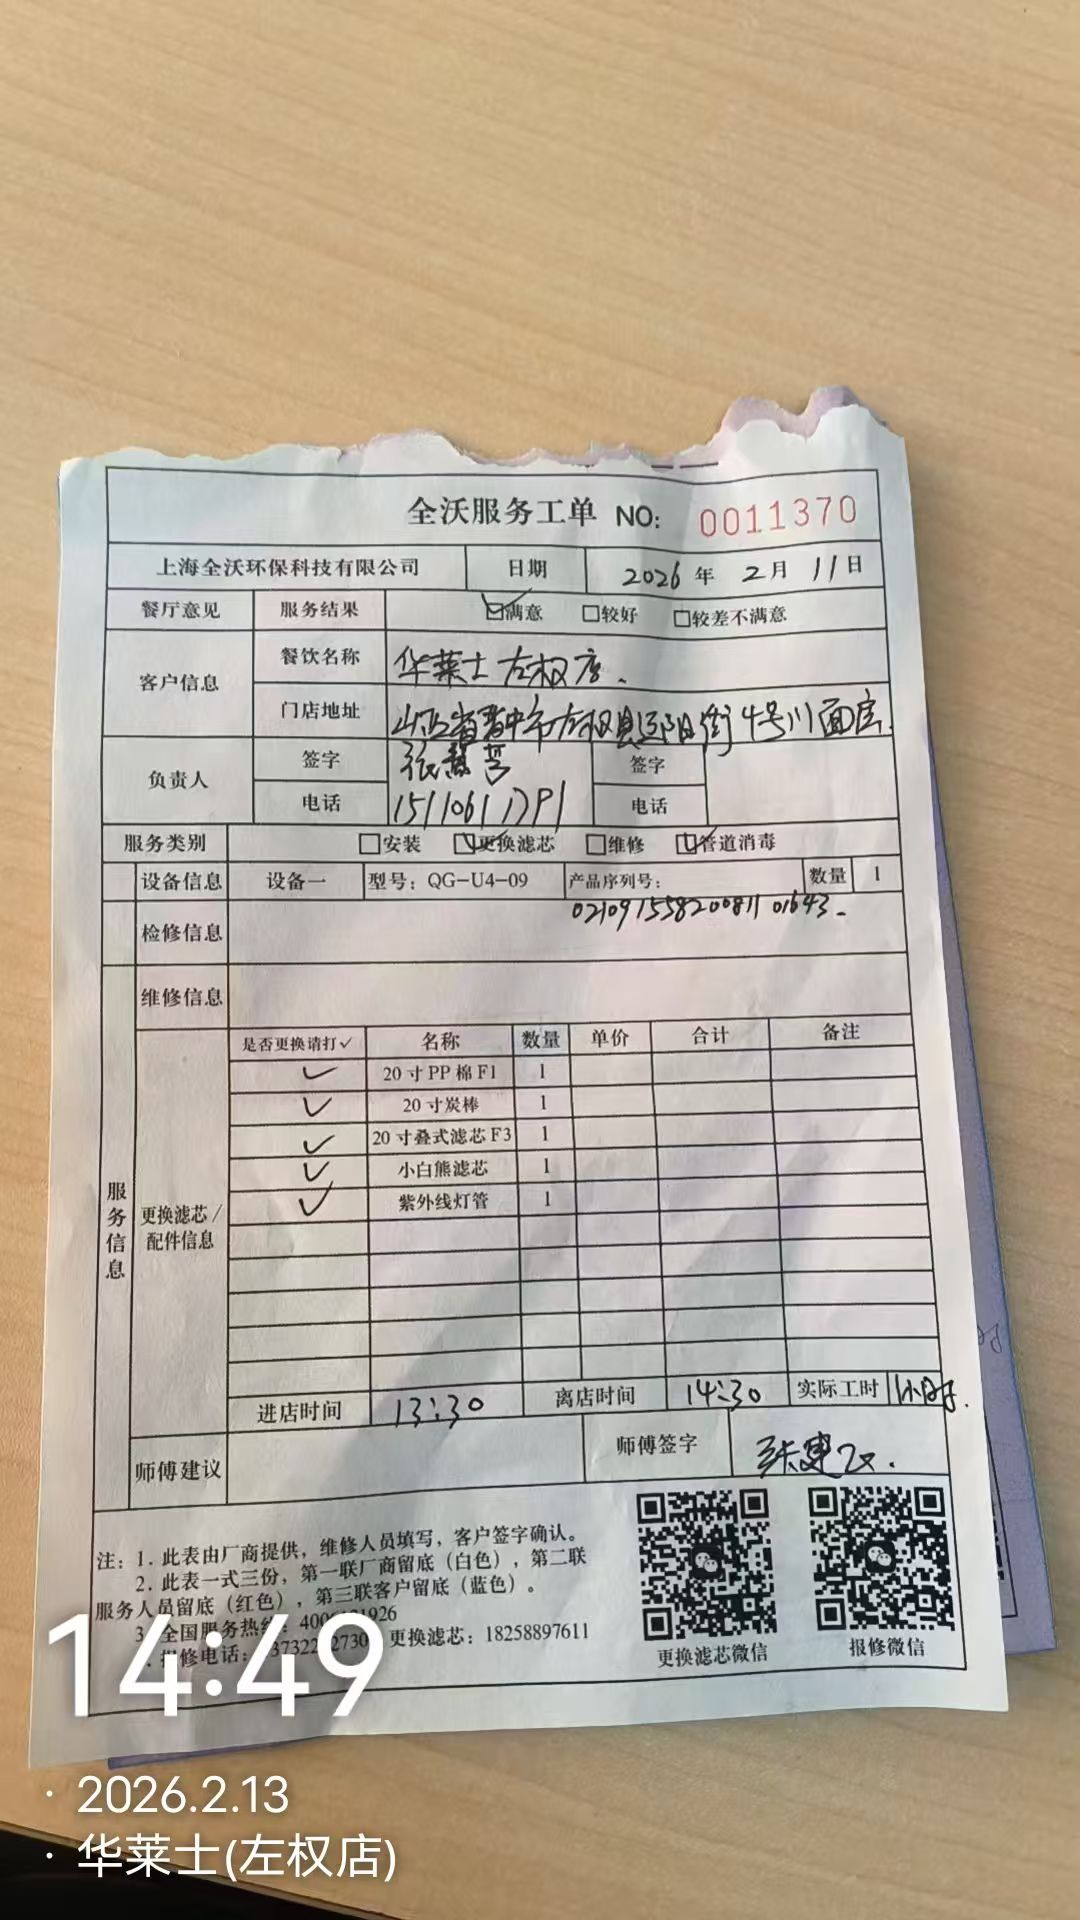 全沃服务工单 NO: 0011370
上海全沃环保科技有限公司 日期 2026年 2月 11日
餐厅意见 服务结果 ☑满意 □较好 □较差不满意
客户信息 餐饮名称 华莱士左权店.
门店地址 山西省晋中市左权县辽阳街4号川面店.
负责人 签字 张慧 签字
电话 15110611791 电话
服务类别 □安装 ☑更换滤芯 □维修 ☑管道消毒
设备信息 设备一 型号: QG-U4-09 产品序列号: 数量 1
021091558200811 01643.
检修信息
维修信息
是否更换请打✓ 名称 数量 单价 合计 备注
✓ 20寸PP棉F1 1
✓ 20寸炭棒 1
✓ 20寸叠式滤芯F3 1
✓ 小白熊滤芯 1
✓ 紫外线灯管 1
服务信息
更换滤芯/
配件信息
进店时间 13:30 离店时间 14:30 实际工时 1小时.
师傅建议 师傅签字
注: 1. 此表由厂商提供，维修人员填写，客户签字确认。
2. 此表一式三份，第一联厂商留底（白色），第二联
服务人员留底（红色），第三联客户留底（蓝色）。
3. 全国服务热线: 1926
报修电话: 更换滤芯: 18258897611
更换滤芯微信 报修微信
14:49
· 2026.2.13
· 华莱士(左权店)